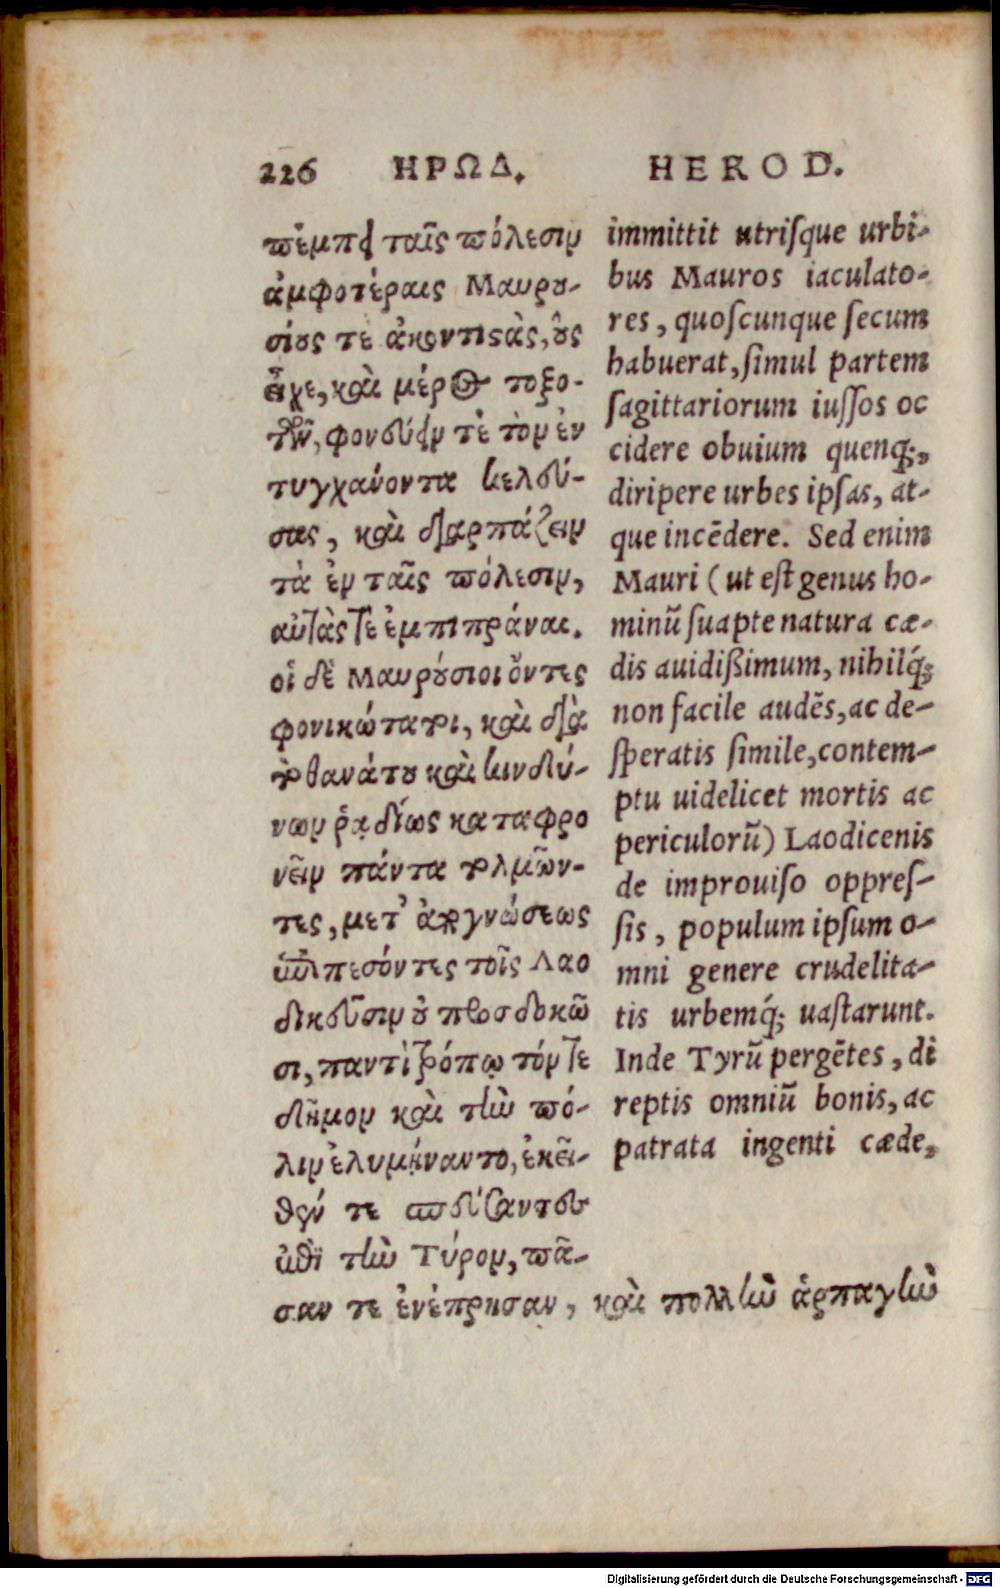 226 ΗΡΩΔ. HEROD.
πέμπει ταῖς πόλεσιν
ἀμφοτέραις Μαυρου-
σίους τε ἀκοντιστὰς, οὓς
εἶχε, καὶ μέρος τοξο-
τῶν, φονεύειν τε τὸν ἐν
τυγχάνοντα κελεύ-
σας, καὶ διαρπάζειν
τὰ ἐν ταῖς πόλεσιν,
αὐτὰς τε ἐμπιπράναι.
οἱ δὲ Μαυρούσιοι ὄντες
φονικώτατοι, καὶ διὰ
τὸ θανάτου καὶ κινδύ-
νων ῥᾳδίως καταφρο
νεῖν πάντα τολμῶν-
τες, μετ' ἀπογνώσεως
ἐπιπεσόντες τοῖς Λαο
δικεῦσιν οὐ προσδοκῶ
σι, παντὶ τρόπῳ τόν τε
δῆμον καὶ τὴν πό-
λιν ἐλυμήναντο, ἐκεῖ-
θέν τε
ἐπὶ τὴν Τύρον, πᾶ-
σαν τε ἐνέπρησαν, καὶ πολλὴν ἁρπαγὴν
immittit utrisque urbi-
bus Mauros iaculato-
res, quoscunque secum
habuerat, simul partem
sagittariorum iussos oc
cidere obuium quenq;,
diripere urbes ipsas, at-
que incēdere. Sed enim
Mauri (ut est genus ho-
minū suapte natura cæ-
dis auidißimum, nihilq́;
non facile audēs, ac de-
speratis simile, contem-
ptu uidelicet mortis ac
periculorū) Laodicenis
de improuiso oppres-
sis, populum ipsum o-
mni genere crudelita-
tis urbemq́; uastarunt.
Inde Tyrū pergētes, di
reptis omniū bonis, ac
patrata ingenti cæde,
Digitalisierung gefördert durch die Deutsche Forschungsgemeinschaft - DFG